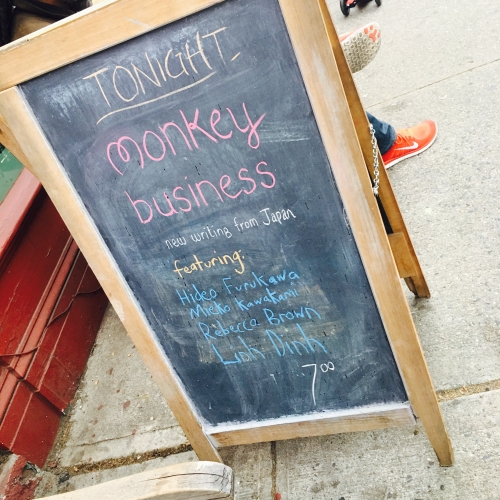 TONIGHT-
monkey
business
new writing from Japan
featuring:
Hideo Furukawa
Mieko Kawakami
Rebecca Brown
Linh Dinh
7⁰⁰